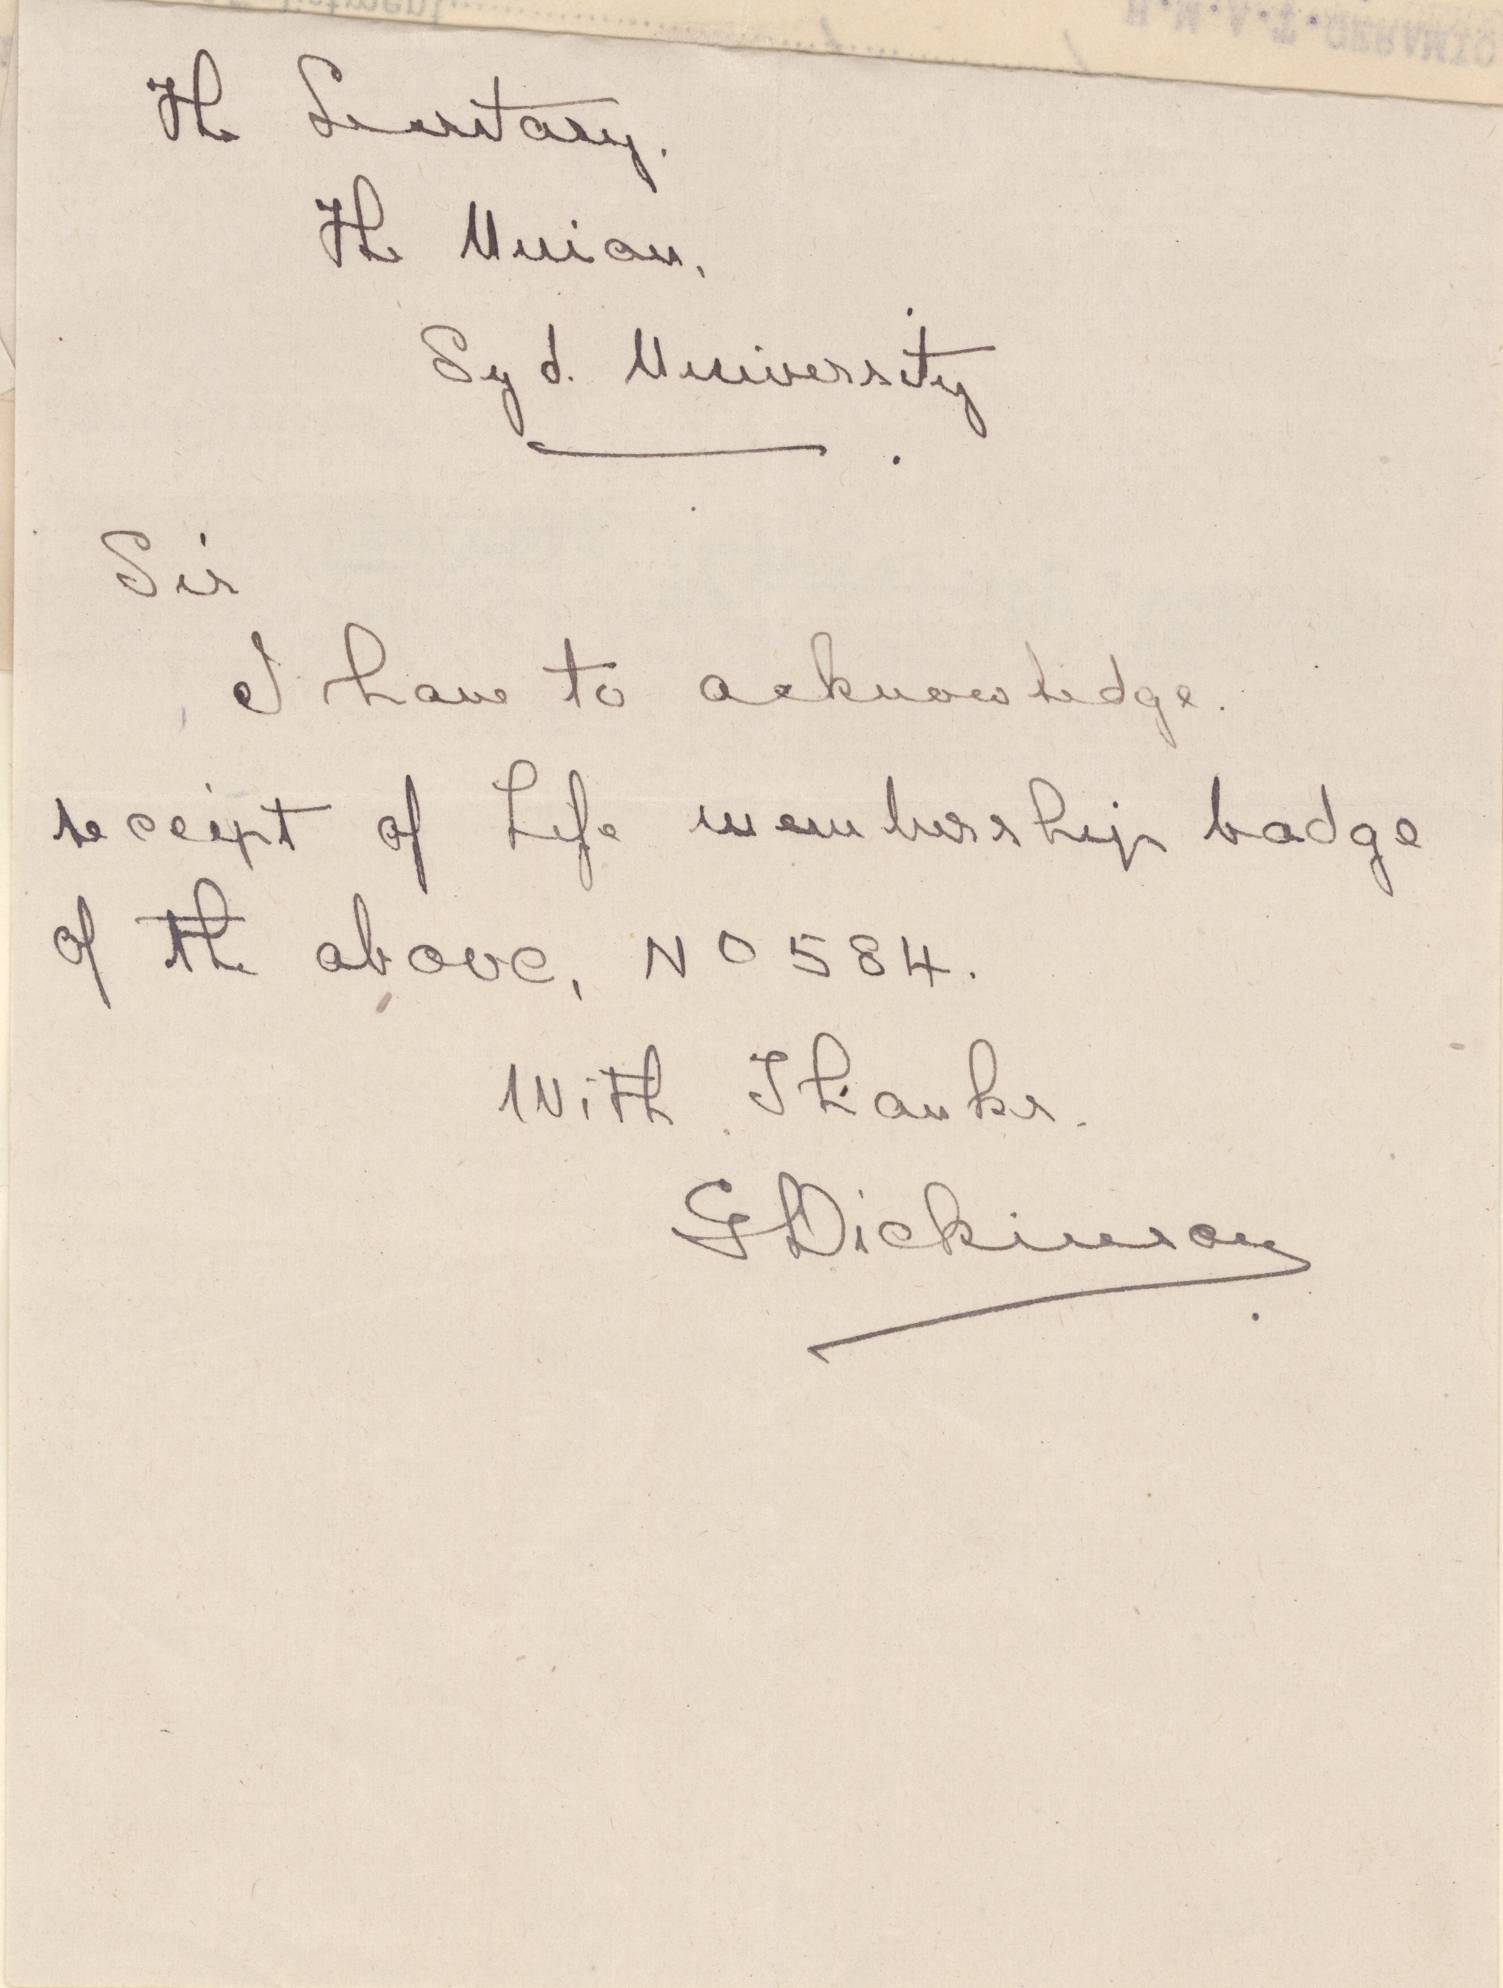 The Secretary.
The Union,
Syd. University
Sir
I have to acknowledge.
receipt of Life membership badge
of the above, NO 584.
With Thanks.
G Dickinson